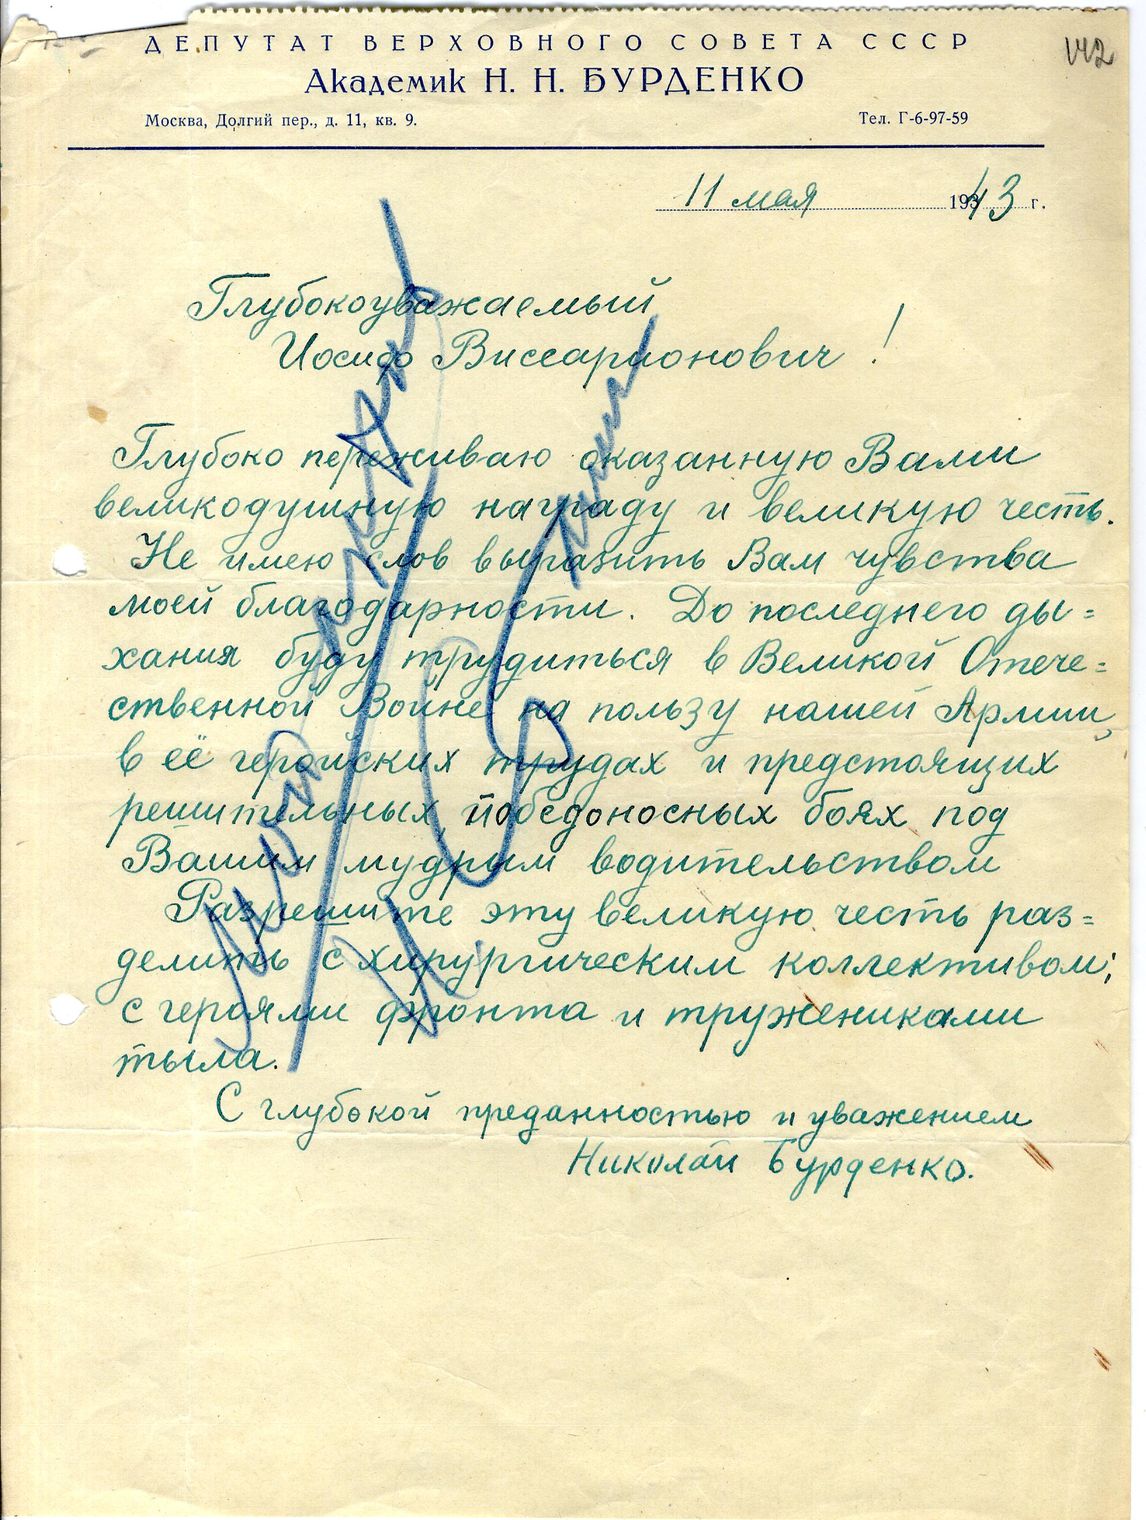 ДЕПУТАТ ВЕРХОВНОГО СОВЕТА СССР
Академик Н. Н. БУРДЕНКО
Москва, Долгий пер., д. 11, кв. 9.
Тел. Г-6-97-59
142
11 мая 1943 г.
Глубокоуважаемый
Иосиф Виссарионович!
Глубоко переживаю оказанную Вами
великодушную награду и великую честь.
Не имею слов выразить Вам чувства
моей благодарности. До последнего ды=
хания буду трудиться в Великой Отече=
ственной Войне на пользу нашей Армии,
в её геройских трудах и предстоящих
решительных, победоносных боях под
Вашим мудрым водительством
Разрешите эту великую честь раз=
делить с хирургическим коллективом;
с героями фронта и тружениками
тыла.
С глубокой преданностью и уважением
Николай Бурденко.